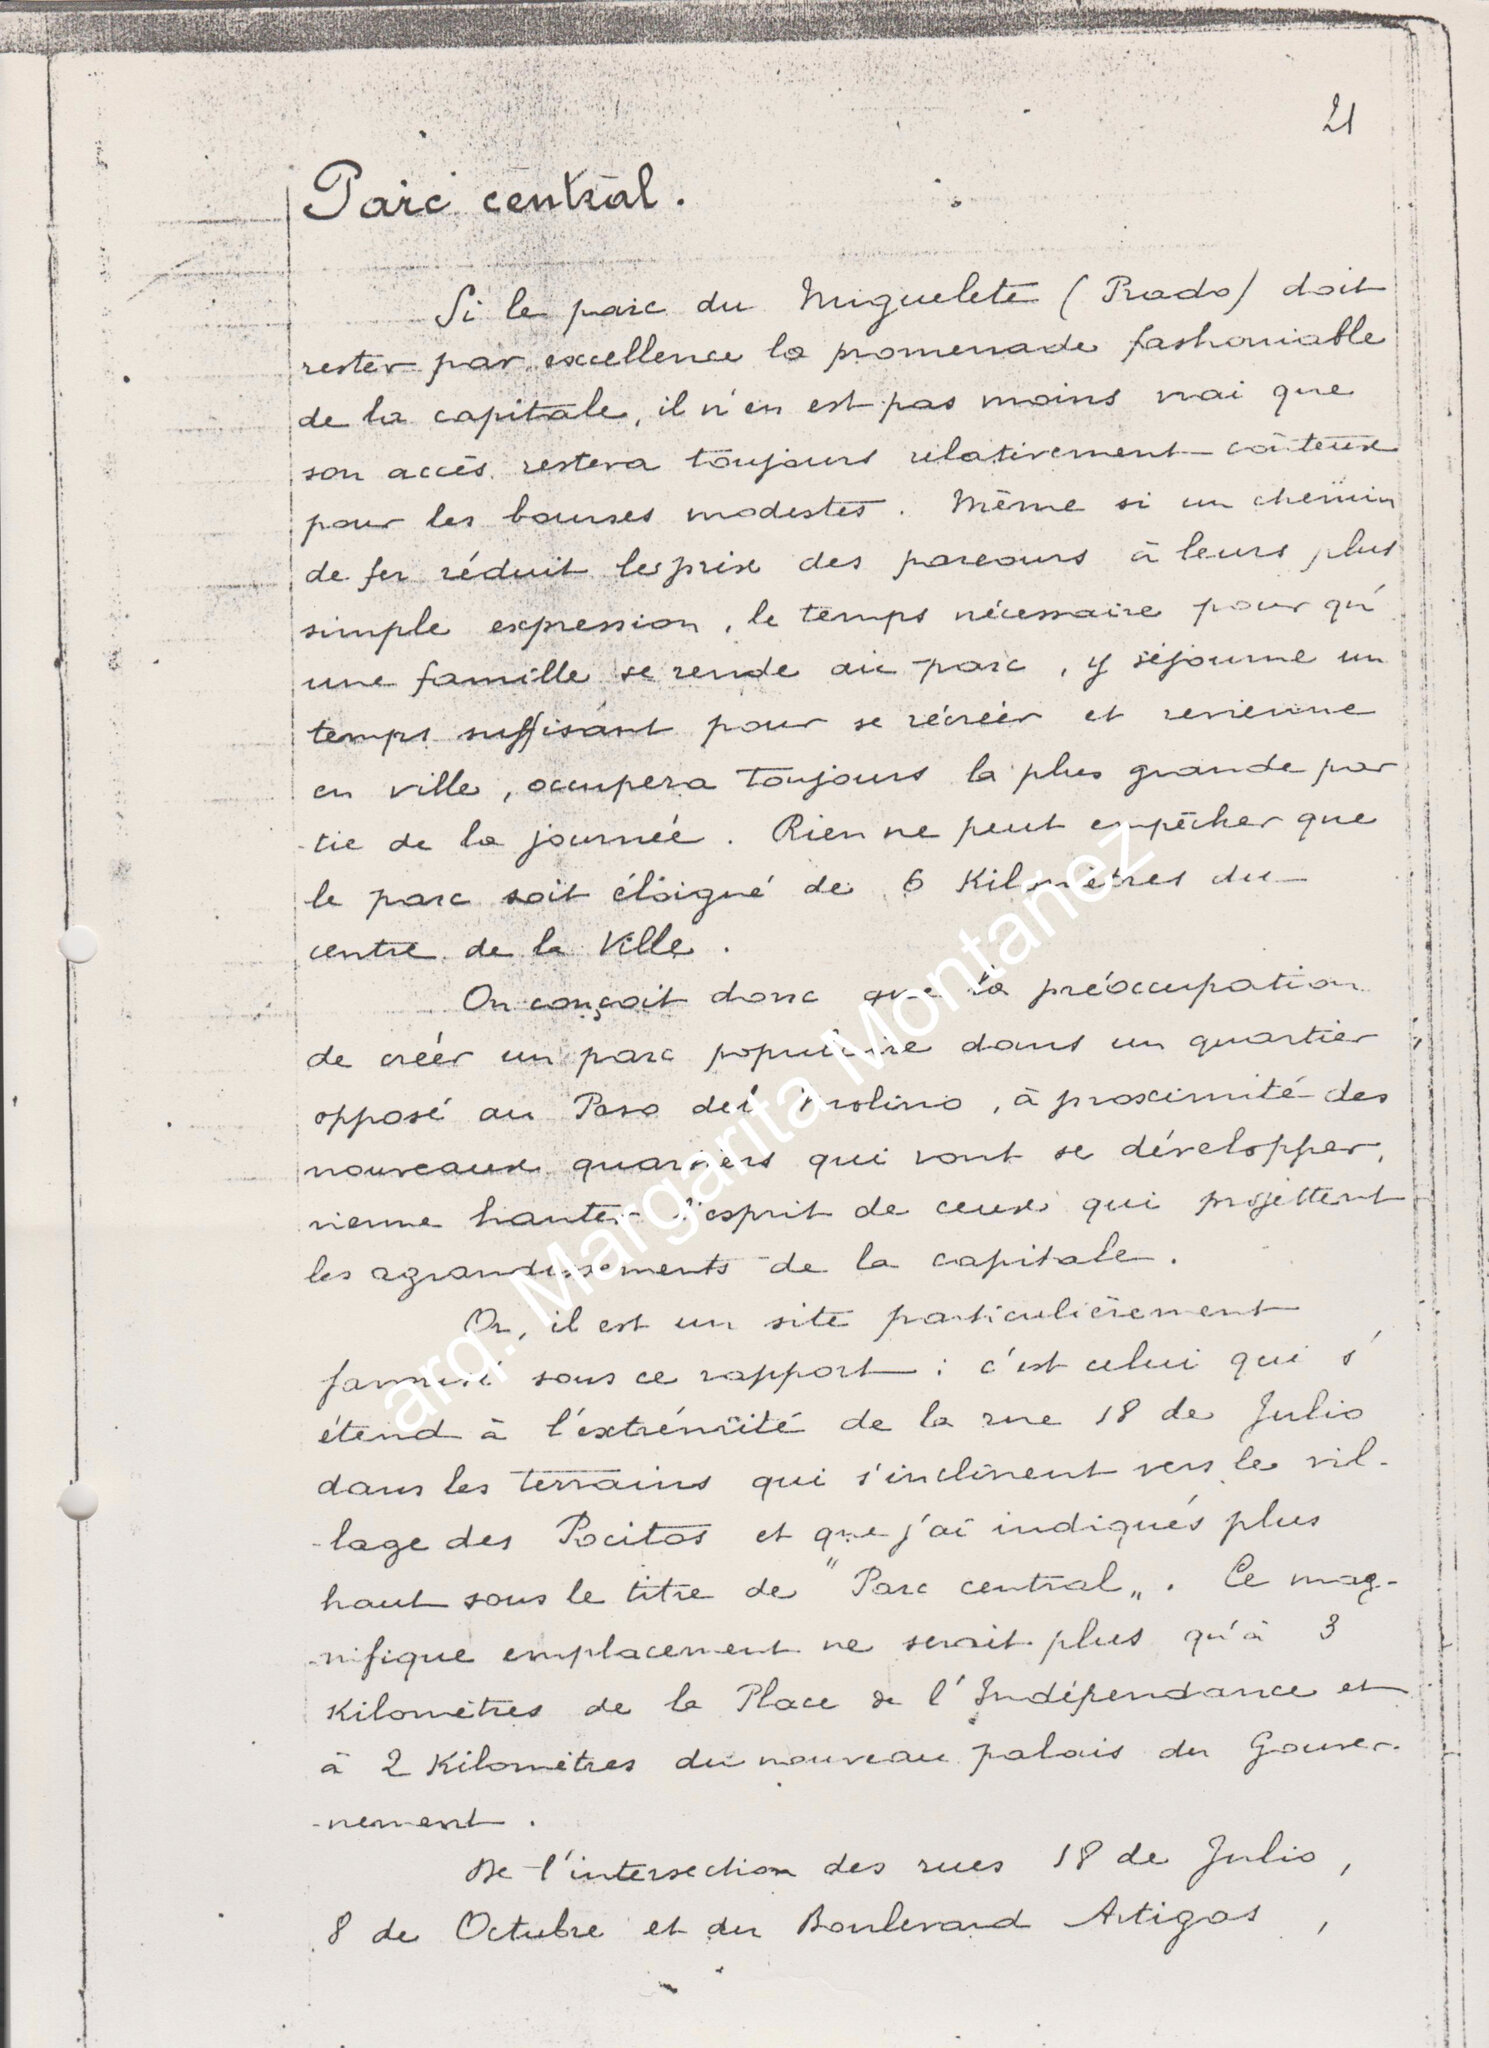 21
Parc central.
Si le parc du Miguelete (Prado) doit
rester par excellence la promenade fashionable
de la capitale, il n'en est pas moins vrai que
son accès restera toujours relativement coûteux
pour les bourses modestes. Même si un chemin
de fer réduit le prix des parcours à leurs plus
simple expression, le temps nécessaire pour qu'
une famille se rende au parc, y séjourne un
temps suffisant pour se récréer et revienne
en ville, occupera toujours la plus grande par
-tie de la journée. Rien ne peut empêcher que
le parc soit éloigné de 6 Kilomètres du
centre de la Ville.
On conçoit donc que la préoccupation
de créer un parc populaire dans un quartier
opposé au Paso del Molino, à proximité des
nouveaux quartiers qui vont se développer,
vienne hanter l'esprit de ceux qui projettent
les agrandissements de la capitale.
Or, il est un site particulièrement
favorisé sous ce rapport : c'est celui qui s'
étend à l'extrémité de la rue 18 de Julio
dans les terrains qui s'inclinent vers le vil-
-lage des Pocitos et que j'ai indiqués plus
haut sous le titre de "Parc central". Ce mag-
-nifique emplacement ne serait plus qu'à 3
Kilomètres de la Place de l'Indépendance et
à 2 Kilomètres du nouveau palais du Gouver-
-nement.
De l'intersection des rues 18 de Julio,
8 de Octubre et du Boulevard Artigas,
arq. Margarita Montañez